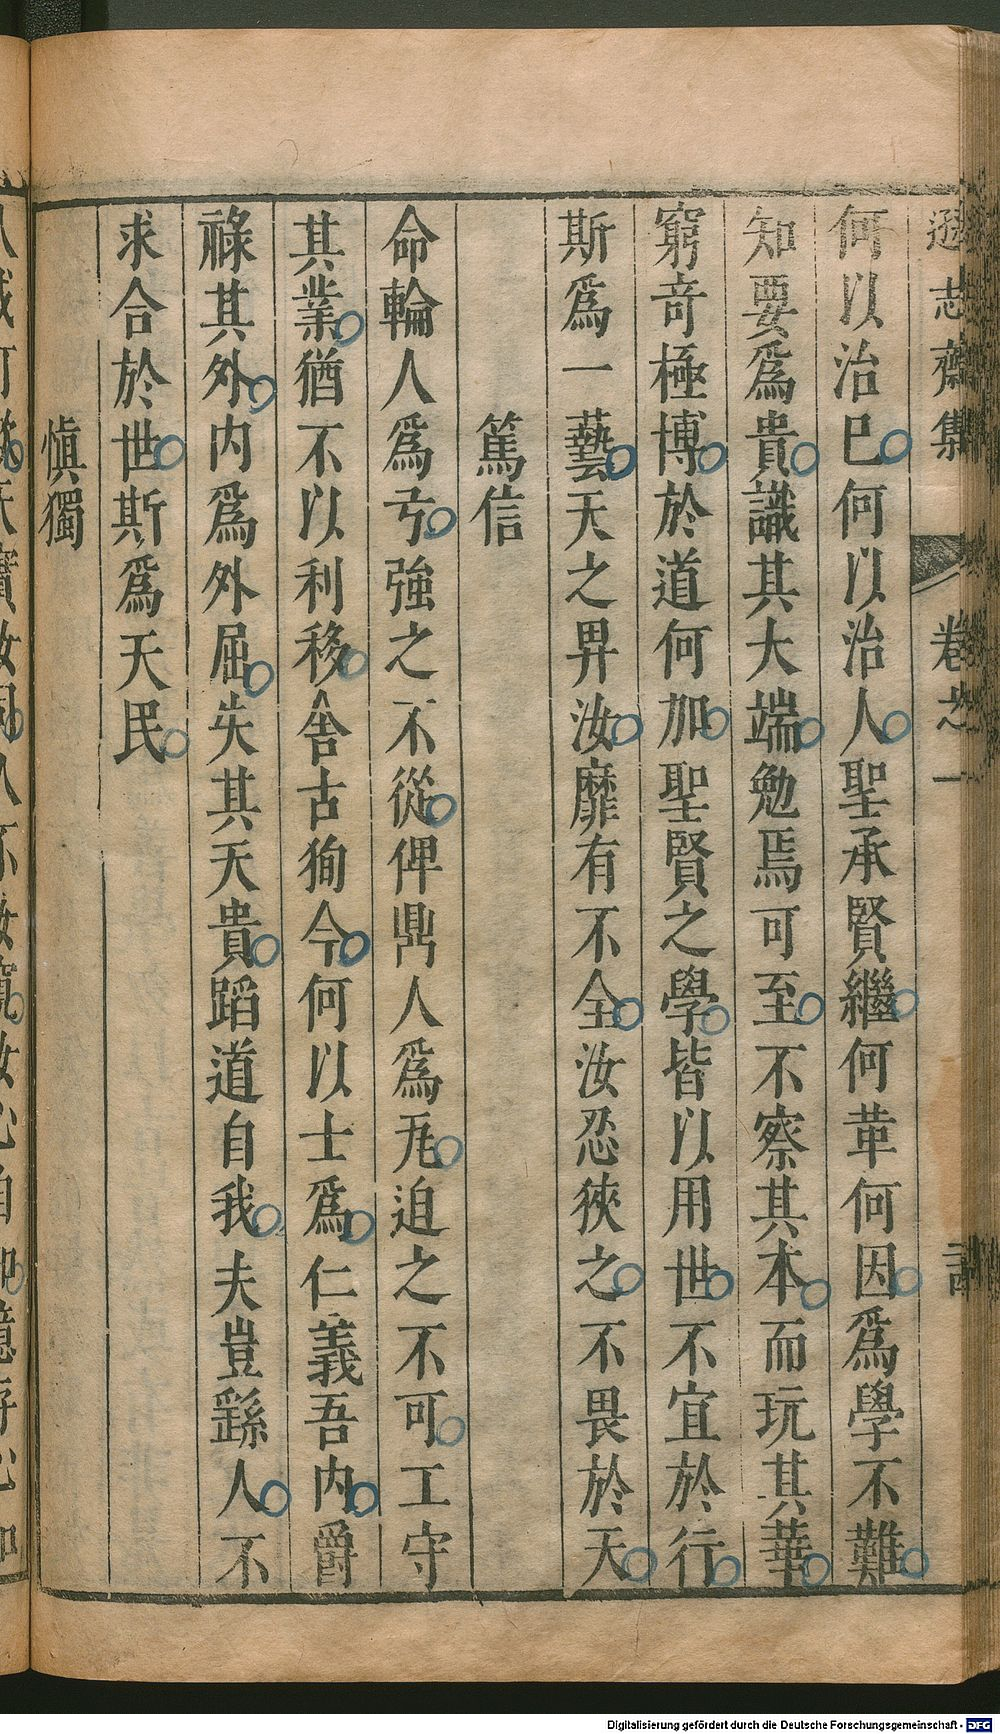 遜志齋集 卷之一
何以治已何以治人聖承賢繼何革何因爲學不難
知要爲貴識其大端勉焉可至不察其本而玩其華
窮竒極博於道何加聖賢之學皆以用世不宜於行
斯爲一藝天之畀汝靡有不全汝忍狹之不畏於天
篤信
命輪人爲弓強之不從俾鼎人爲巵迫之不可工守
其業猶不以利移舍古狥今何以士爲仁義吾内爵
祿其外内爲外屈失其天貴蹈道自我夫豈繇人不
求合於世斯爲天民
慎獨
Digitalisierung gefördert durch die Deutsche Forschungsgemeinschaft - DFG